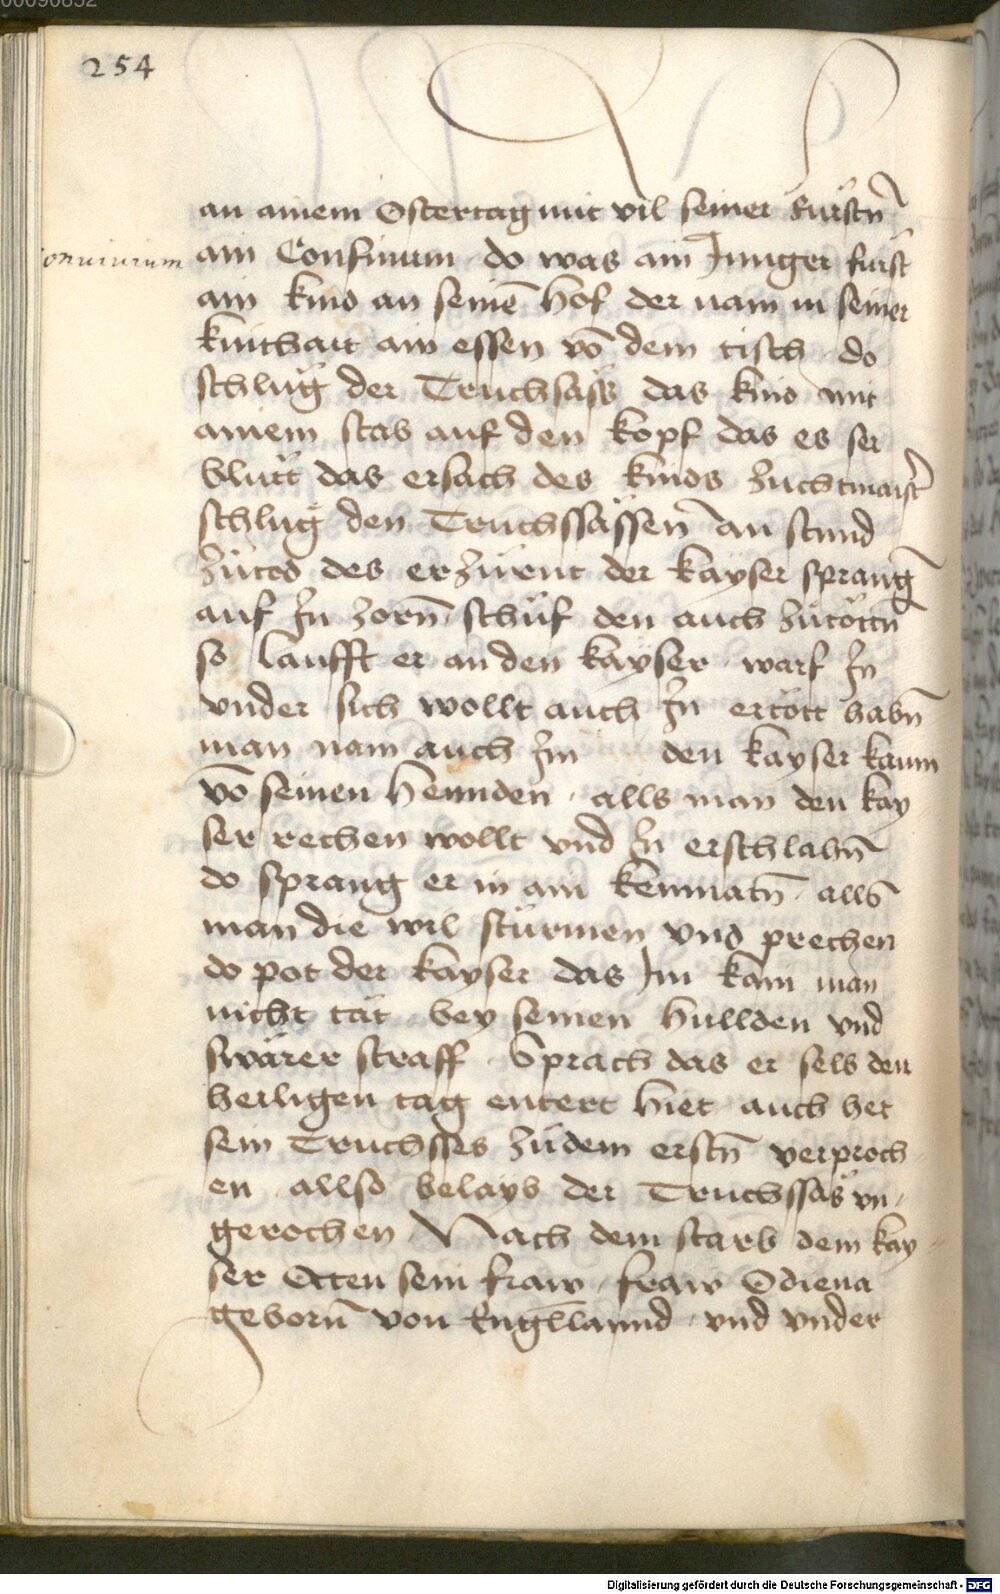 00090852
254
an ainem Ostertag mit vil seiner Furstn̄
onuiuium
ain Confinium do was ain Junger furst
ain kind an seinē hof der nam in seiner
kinthait ain essen võ dem tisch do
schlug der Truchsäss das kind mit
ainem stab auf den kopf das es ser
blutt das ersach des kinds zuchtmaist̄
schlug den Truchssässen an stund
zutod des erzürnt der kayser sprang
auf Jn zorn̄ schüf den auch zütöttn̄
so laufft er an den kayser warf Jn
vnder sich wollt auch Jn ertött habn̄
man nam auch Jm den kayser kaum
võ seinen hennden alls man den kay
ser rechen wollt vnd Jn erschlahn̄
do sprang er in ain kemnatn̄ alls
man die wil stürmen vnd prechen
do pot der kayser das Jm kain man
nicht tät bey seinen hullden vnd
swärer straff Sprach das er selb den
heiligen tag entert hiet auch het
sein Truchsses züdem erstn̄ verproch
en allso belayb der Truchssäs vn
gerochen Nach dem starb dem kay
ser Otten sein fraw fraw Odiena
geborn̄ von Enngllannd vnd vnder
Digitalisierung gefördert durch die Deutsche Forschungsgemeinschaft - DFG